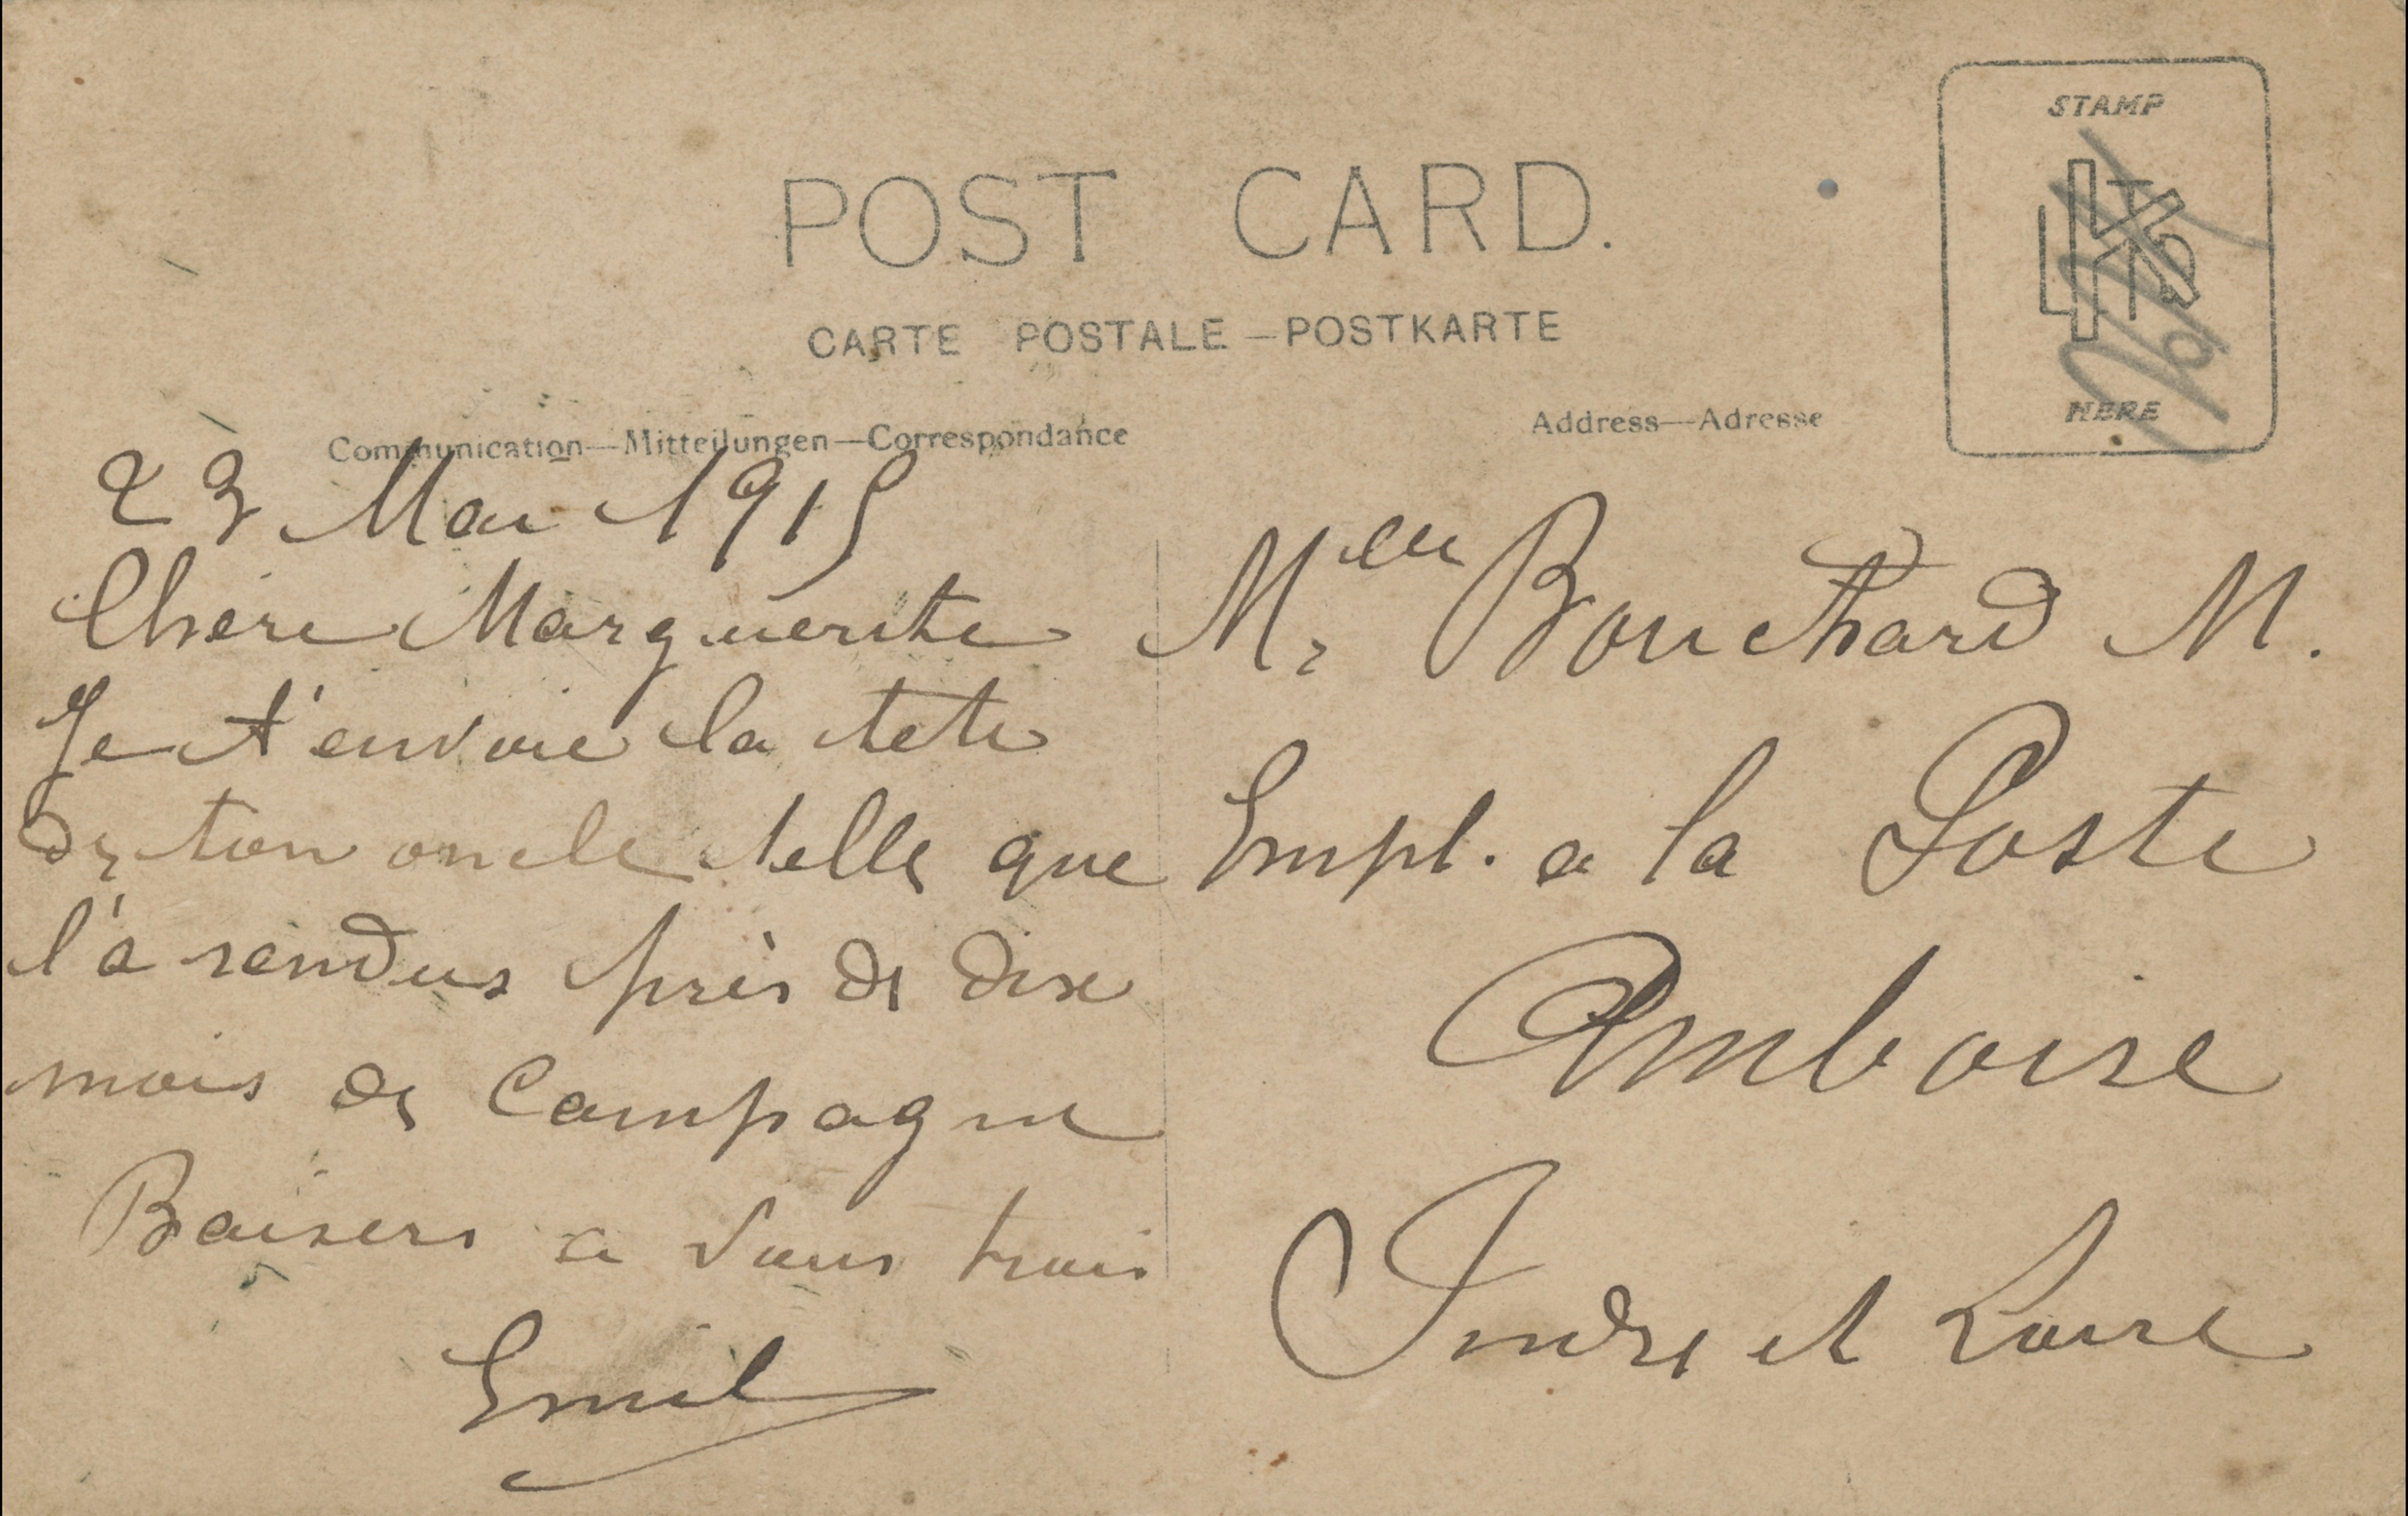 POST CARD.
CARTE POSTALE — POSTKARTE
Communication—Mitteilungen—Correspondance
Address—Adresse
STAMP
HERE
23 Mai 1915
Chère Marguerite
Je t'envoie la tete
de ton oncle telle que
l'a rendus près de dix
mois de Campagne
Baisers a vous trois
Emile
Melle Bouchard M.
Empl. a la Poste
Amboise
Indre et Loire